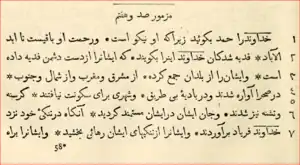 مزمور صد و هفتم
۱ خداوندرا حمد بکوئید زیراکه او نیکو است * ورحمت او باقیست تا ابد
۲ الآباد * فدیه شدکان خداوند اینرا بکویند * که ایشانرا ازدست دشمن فدیه داده
۳ است * وایشانرا از بلدان جمع کرده * از مشرق ومغرب واز شمال وجنوب *
۴ درصحرا آواره شدند ودربادیهٔ بی طریق * وشهری برای سکونت نیافتند * کرسنه
۵
۶ وتشنه نیز شدند * وجان ایشان درایشان مستمند کردید * آنکاه درتنکیٔ خود نزد
۷ خداوند فریاد برآوردند * وایشانرا ازتنکیهای ایشان رهائی بخشید * وایشانرا براه
58*